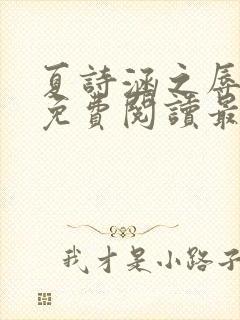 夏詩涵之辱
免費閱讀最
我才是小路子